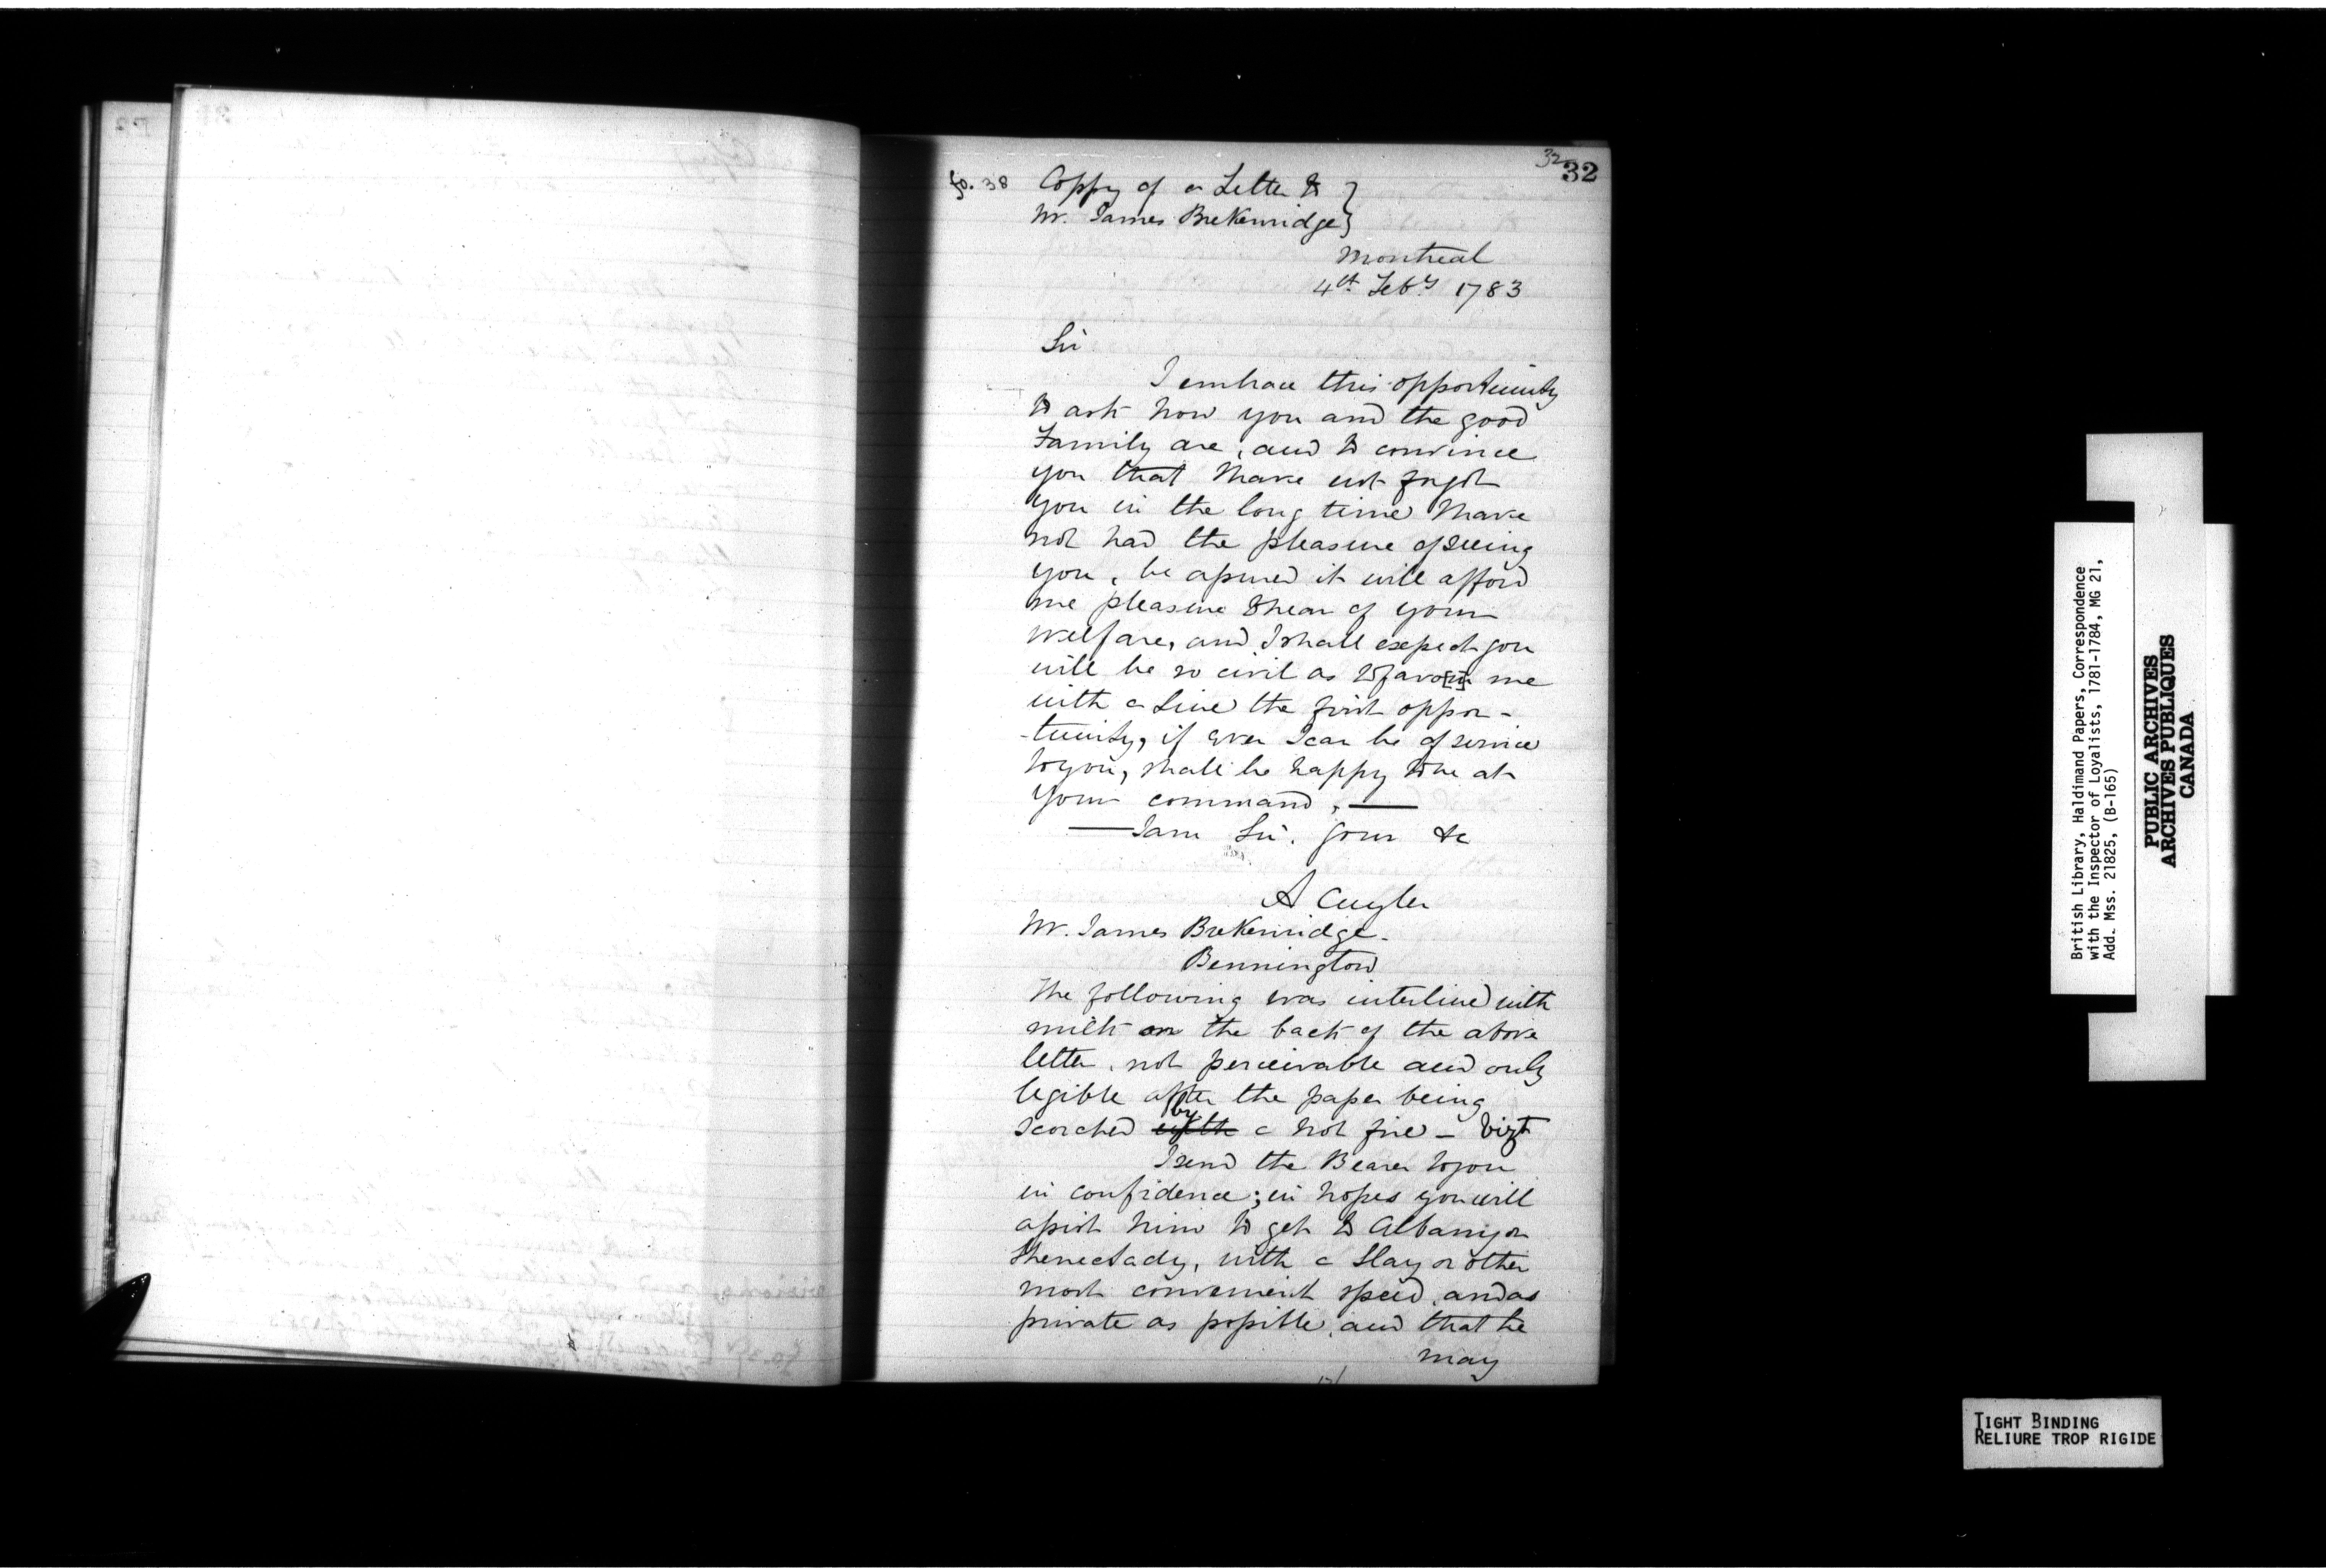 32
32
fo. 38 Coppy of a Letter to }
Mr. James BreKenridge }
Montreal
4th Feby 1783
Sir
I embrace this opportunity
to ask how you and the good
Family are, and to convince
you that I have not forgot
you in the long time I have
not had the pleasure of seeing
you, be assured it will afford
me pleasure to hear of your
welfare, and I shall expect you
will be so civil as to favo[u]r me
with a Line the first oppor-
-tunity, if ever I can be of service
to you, shall be happy to be at
your command, —
— I am Sir. your &c
A Cuyler
Mr. James BreKenridge.
Bennington
The following was interlined with
milk on the back of the above
letter, not perceivable and only
legible after the paper being
by
scorched with a hot fire — Vizt
I send the Bearer to you
in confidence; in hopes you will
assist him to get to Albany or
Shenectady, with a Slay or other
most convenient speed, and as
private as possible, and that he
may
British Library, Haldimand Papers, Correspondence
with the Inspector of Loyalists, 1781-1784, MG 21,
Add. Mss. 21825, (B-165)
PUBLIC ARCHIVES
ARCHIVES PUBLIQUES
CANADA
TIGHT BINDING
RELIURE TROP RIGIDE